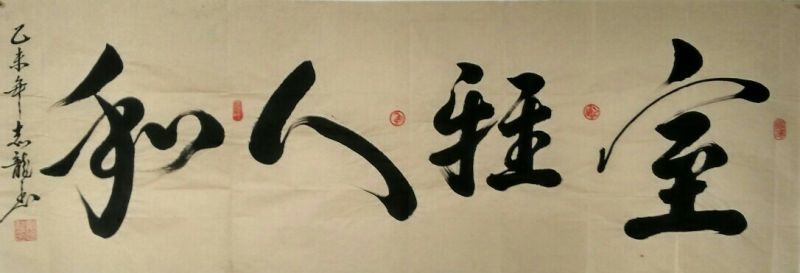 室雅人和
乙未年志龍书